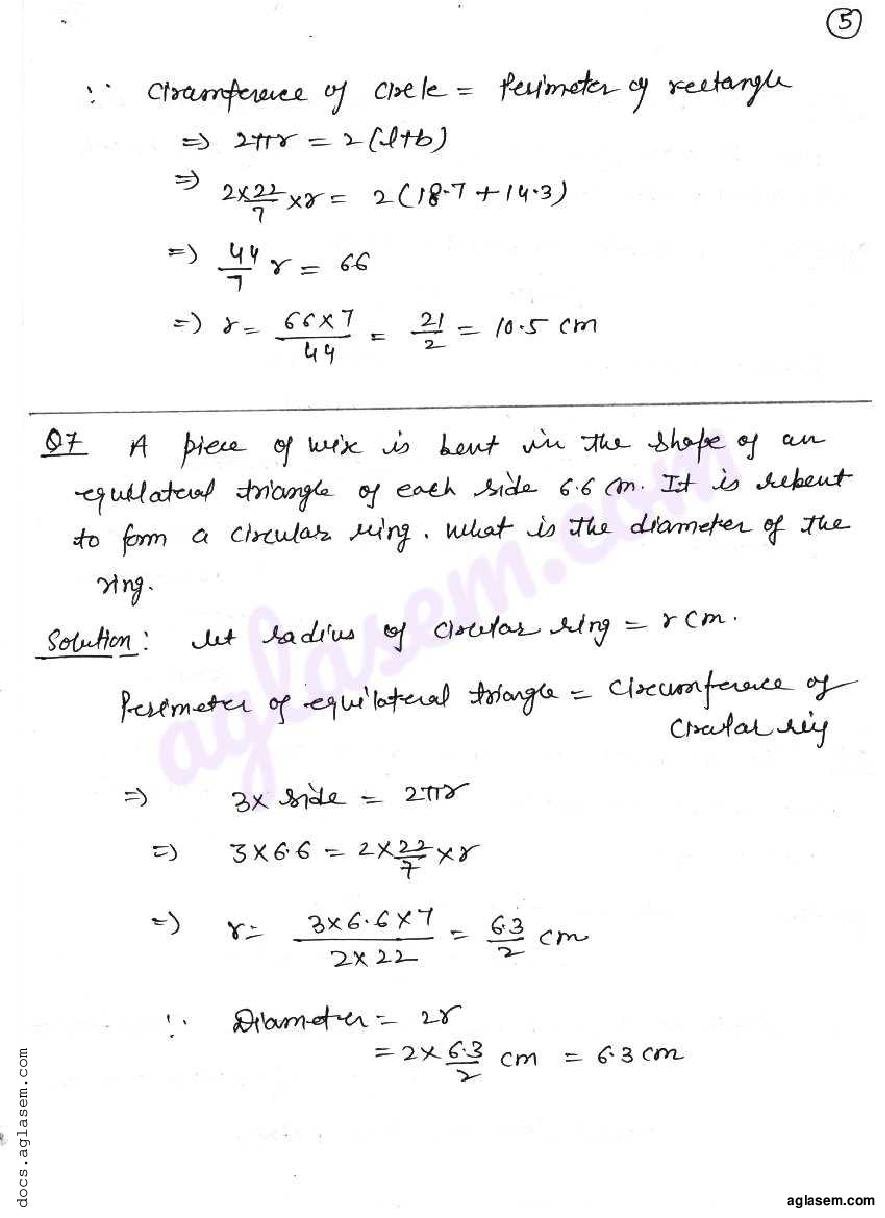 5
∵ Circumference of Circle = Perimeter of rectangle
⇒ 2πr = 2(l+b)
⇒ 2×22/7 ×r = 2(18.7 + 14.3)
⇒ 44/7 r = 66
⇒ r = 66×7/44 = 21/2 = 10.5 cm
Q7 A piece of wire is bent in the shape of an
equilateral triangle of each side 6.6 cm. It is rebent
to form a circular ring. What is the diameter of the
ring.
Solution: let radius of circular ring = r cm.
Perimeter of equilateral triangle = Circumference of
Circular ring
⇒ 3× side = 2πr
⇒ 3×6.6 = 2×22/7 ×r
⇒ r = 3×6.6×7/2×22 = 6.3/2 cm
∵ Diameter = 2r
= 2×6.3/2 cm = 6.3 cm
aglasem.com
docs.aglasem.com
aglasem.com